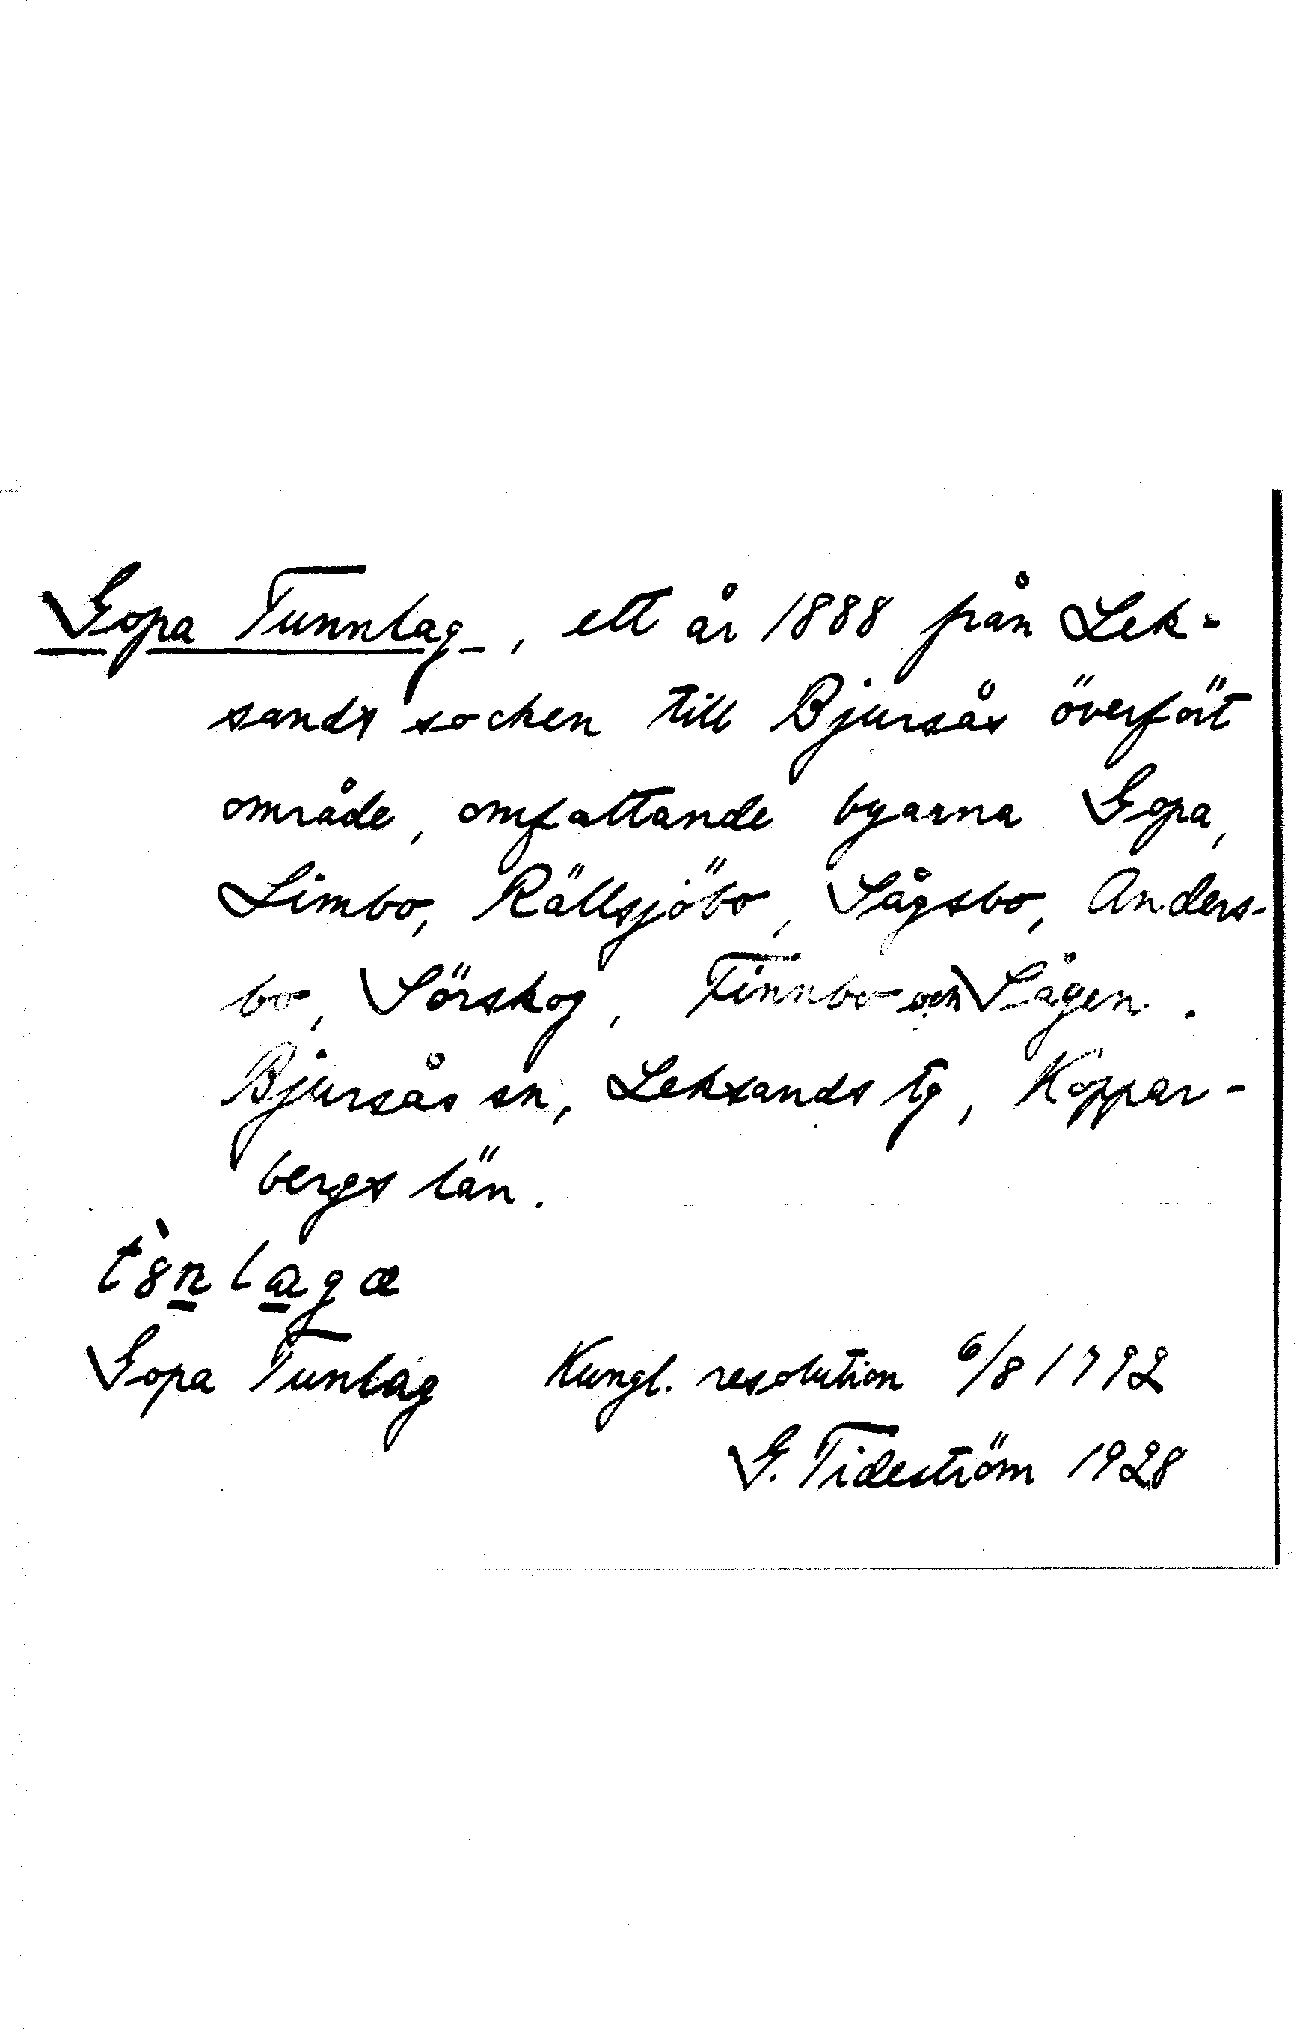 Gopa Tunnlag, ett år 1888 från Lek-
sands socken till Bjursås överfört
område, omfattande byarna Gopa,
Limbo, Rällsjöbo, Sågsbo, Anders-
bo, Sörskog, Finnbo och Sågen.
Bjursås sn, Leksands tg, Koppar-
bergs län.
Gopa Tunlag Kungl. resolution 6/8 1792
G. Tideström 1928